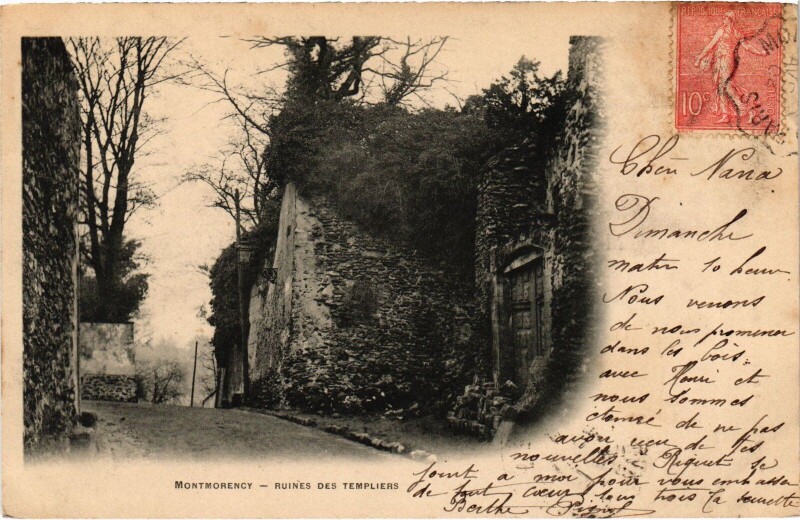 RÉPUBLIQUE FRANÇAISE
10 c
PARIS
Chère Nana
Dimanche
matin 10 heur
Nous venons
de nous promener
dans les bois,
avec Henri et
nous sommes
étonné de ne pas
avoir eu de tes
nouvelles Riquet se
joint a moi pour vous embrasser
de tout cœur tous trois ta
Berthe
MONTMORENCY — RUINES DES TEMPLIERS